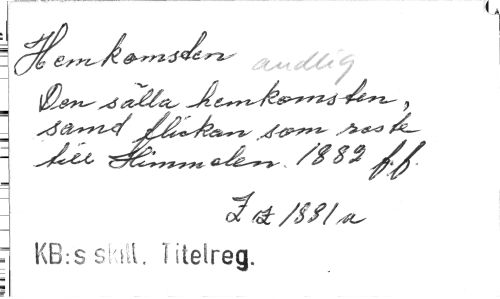 Hemkomsten andlig
Den sälla hemkomsten,
samt flickan som reste
till Himmelen. 1882 ff.
1881 a
KB:s skill. Titelreg.